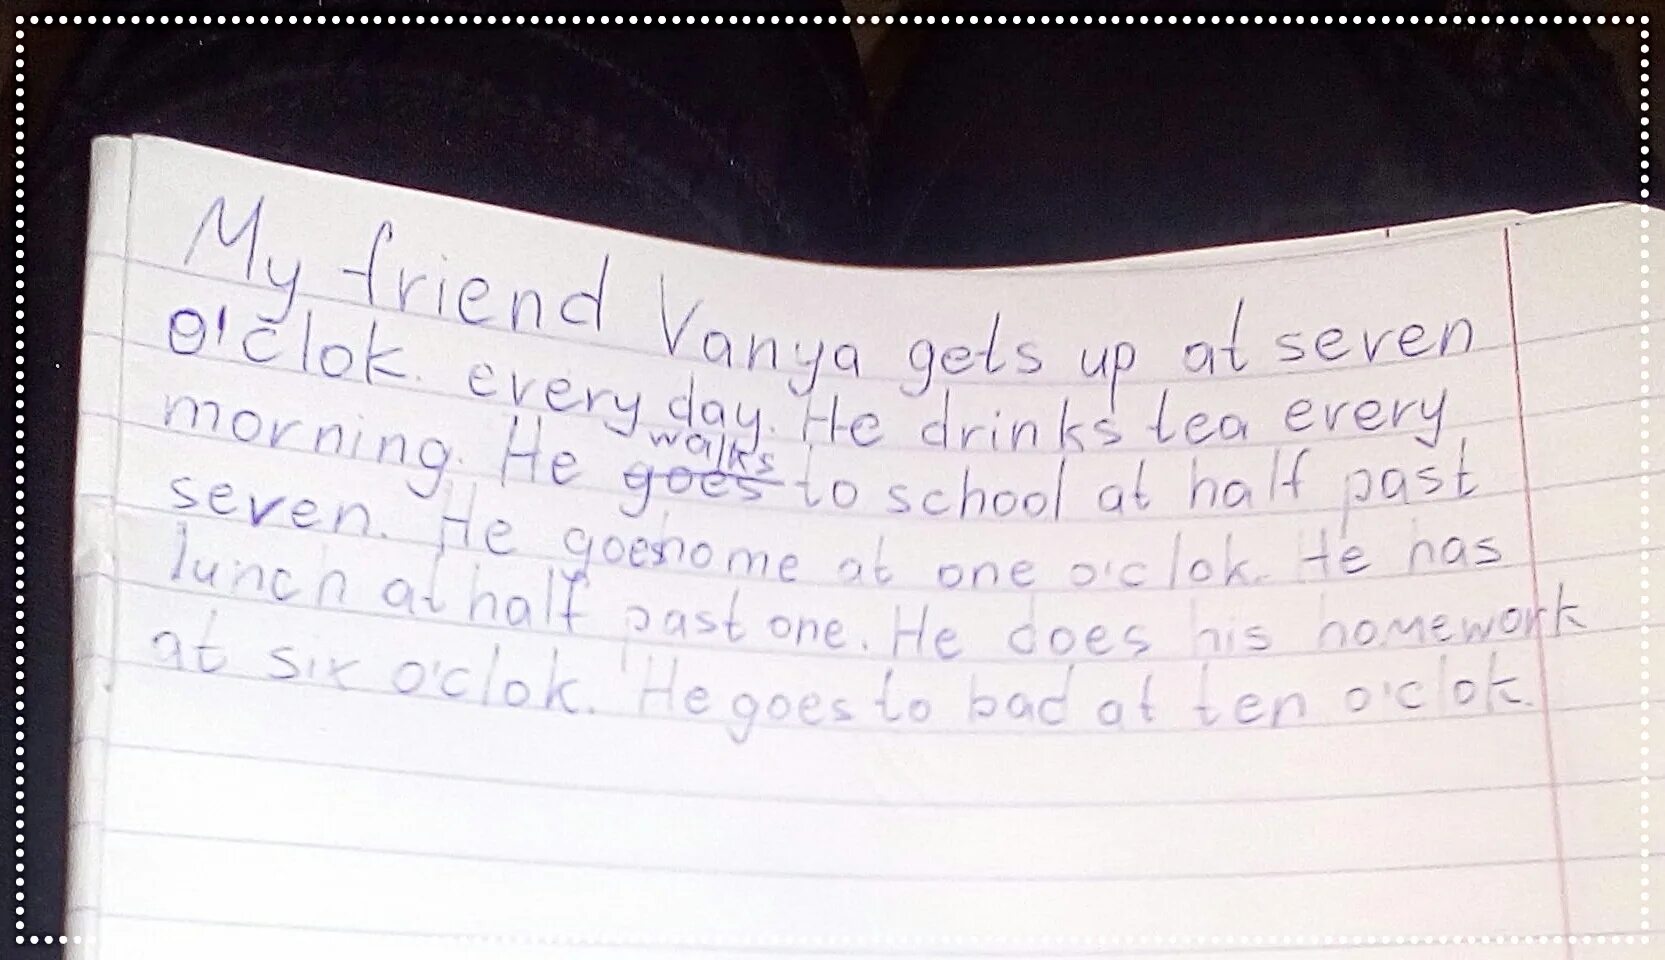 My friend Vanya gets up at seven
o'clok. every day. He drinks tea every
morning. He goes walks to school at half past
seven. He goes home at one o'clok. He has
lunch at half past one. He does his homework
at six o'clok. He goes to bad at ten o'clok.